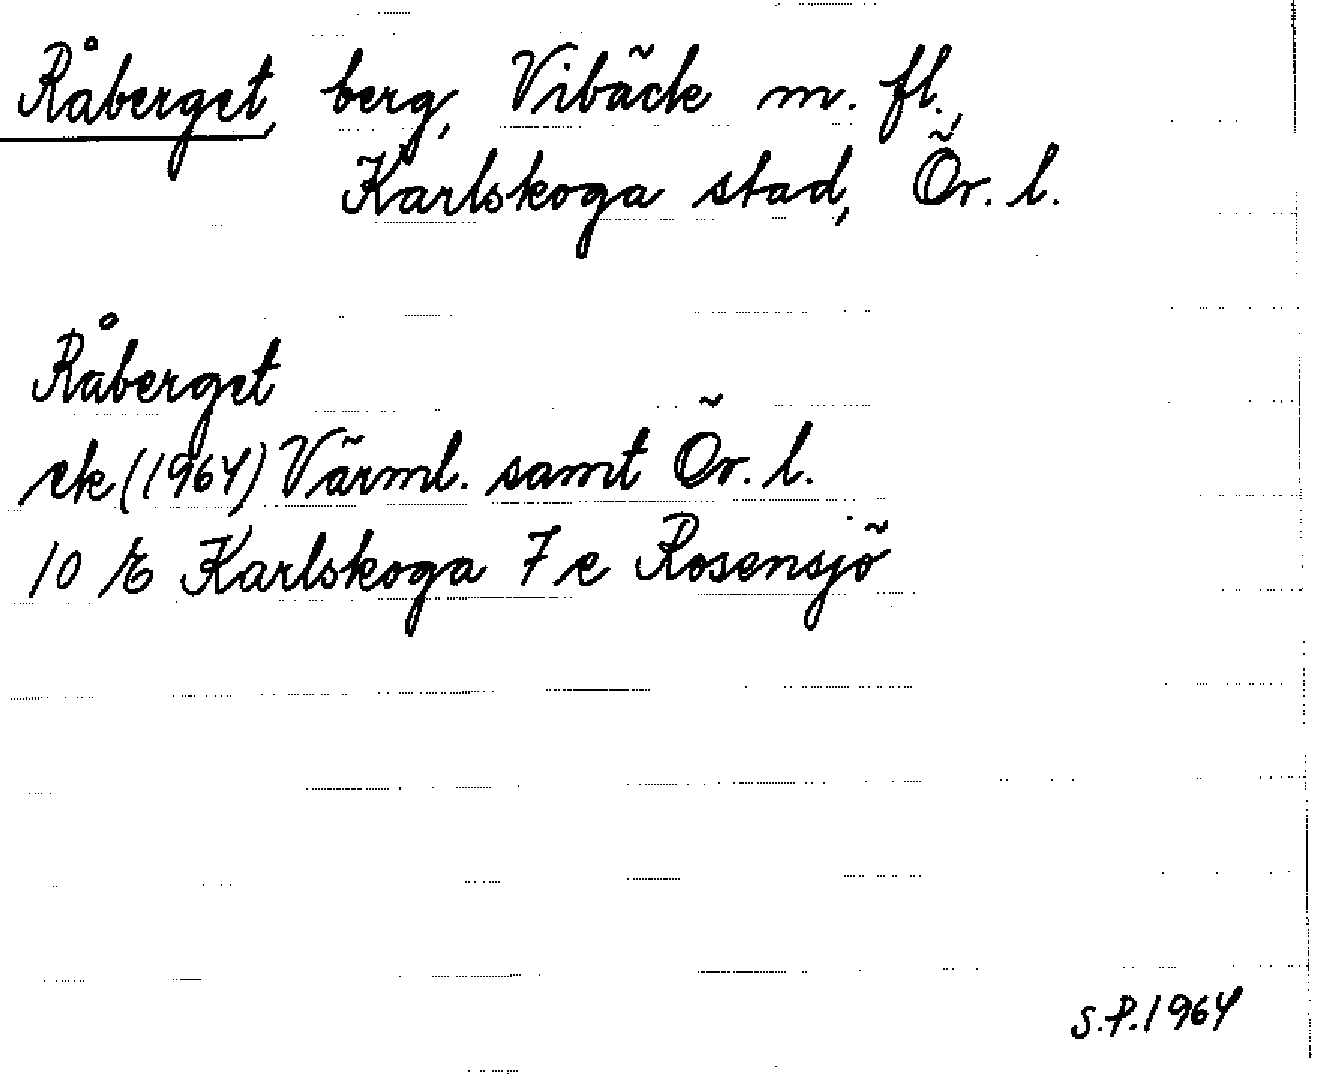 Råberget, berg, Vibäck m. fl.,
Karlskoga stad, Ör. l.
Råberget
ek (1964) Värml. samt Ör. l.
10 E Karlskoga 7 e Rosensjö
S.P. 1964